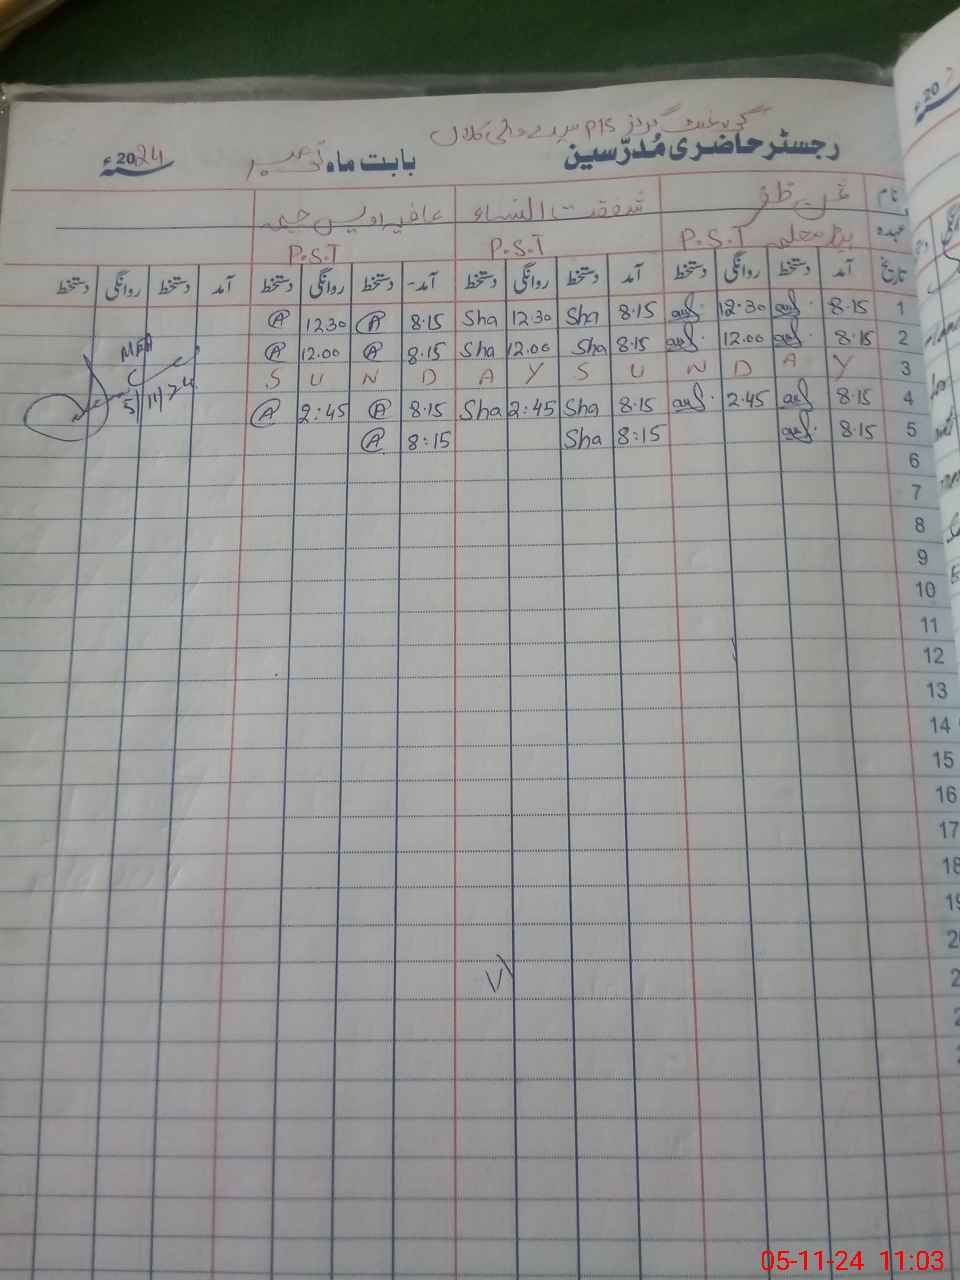 گورنمنٹ گرلز P/S
رجسٹر حاضری مُدرّسین بابت ماہ نومبر 2024ء
نام شفقت النساء عافیہ اویس چیمہ
عہدہ ہیڈ معلمہ P.S.T P.S.T P.S.T
تاریخ آمد دستخط روانگی دستخط آمد دستخط روانگی دستخط آمد دستخط روانگی دستخط آمد دستخط روانگی دستخط
1 8.15 12.30 8.15 Sha 12.30 Sha 8.15 A 12.30 A
2 8.15 12.00 8.15 Sha 12.00 Sha 8.15 A 12.00 A
3 S U N D A Y S U N D A Y
4 8.15 2.45 8.15 Sha 2:45 Sha 8.15 A 2:45 A
5 8.15 8:15 Sha 8:15 A
5/11/24
6
7
8
9
10
11
12
13
14
15
16
17
18
05-11-24 11:03